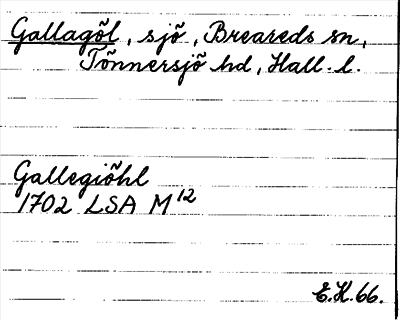 Gallagõl, sjõ, Breareds sn,
Tõnnersjõ hd, Hall. l.
Gallegiõhl
1702 LSA M 12
E.H. 66.